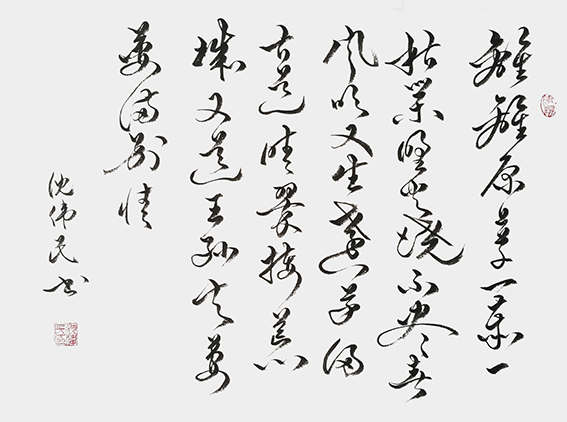 離離原上草一歲一
枯榮野火燒不盡春
風吹又生遠芳侵
古道晴翠接荒
城又送王孫去萋
萋滿別情
沈伟民书